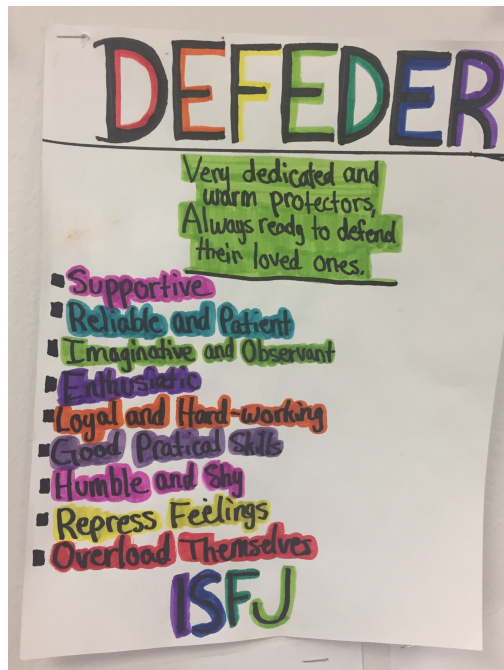 DEFEDER
Very dedicated and
warm protectors,
Always ready to defend
their loved ones.
Supportive
Reliable and Patient
Imaginative and Observant
Enthusiatic
Loyal and Hard-working
Good Pratical Skills
Humble and Shy
Repress Feelings
Overload Themselves
ISFJ